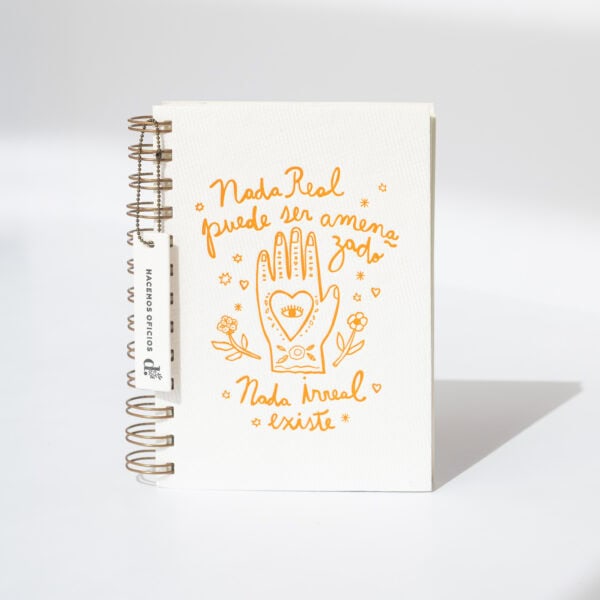 Nada Real
puede ser amena
zado
Nada irreal
existe
HACEMOS OFICIOS
d.